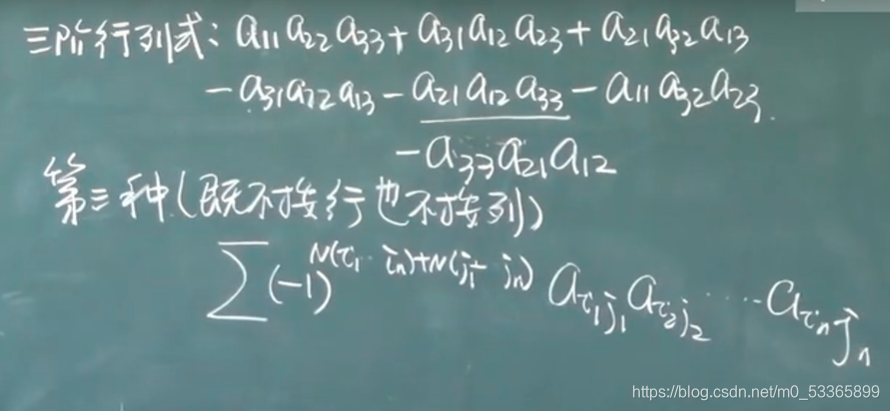 三阶行列式: a₁₁a₂₂a₃₃+a₃₁a₁₂a₂₃+a₂₁a₃₂a₁₃
-a₃₁a₂₂a₁₃-a₂₁a₁₂a₃₃-a₁₁a₃₂a₂₃.
-a₃₃a₂₁a₁₂
第三种(既不按行也不按列)
∑(-1)^{N(i₁…iₙ)+N(j₁…jₙ)} a_{i₁j₁}a_{i₂j₂}……a_{iₙjₙ}
https://blog.csdn.net/m0_53365899